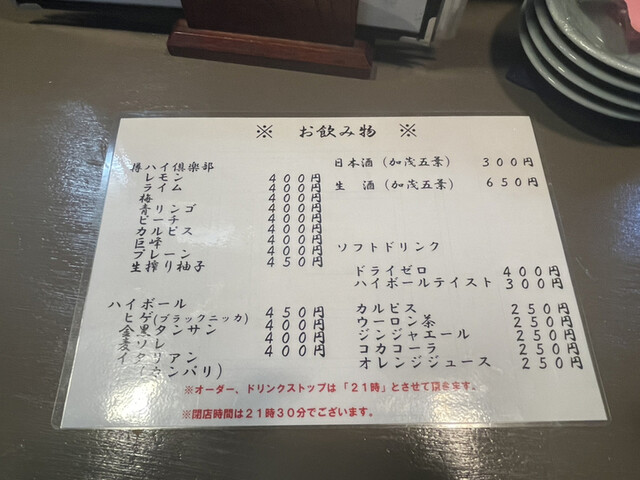 ※ お飲み物 ※
樽ハイ倶楽部
レモン 400円
ライム 400円
梅 400円
青リンゴ 400円
ピーチ 400円
カルピス 400円
巨峰 400円
プレーン 400円
生搾り柚子 450円
ハイボール
ヒゲ(ブラックニッカ) 450円
金黒タンサン 400円
麦ソレ 400円
イタリアン 400円
(カンパリ)
日本酒(加茂五葉) 300円
生 酒(加茂五葉) 650円
ソフトドリンク
ドライゼロ 400円
ハイボールテイスト 300円
カルピス 250円
ウーロン茶 250円
ジンジャエール 250円
コカコーラ 250円
オレンジジュース 250円
※オーダー、ドリンクストップは「21時」とさせて頂きます。
※閉店時間は21時30分でございます。